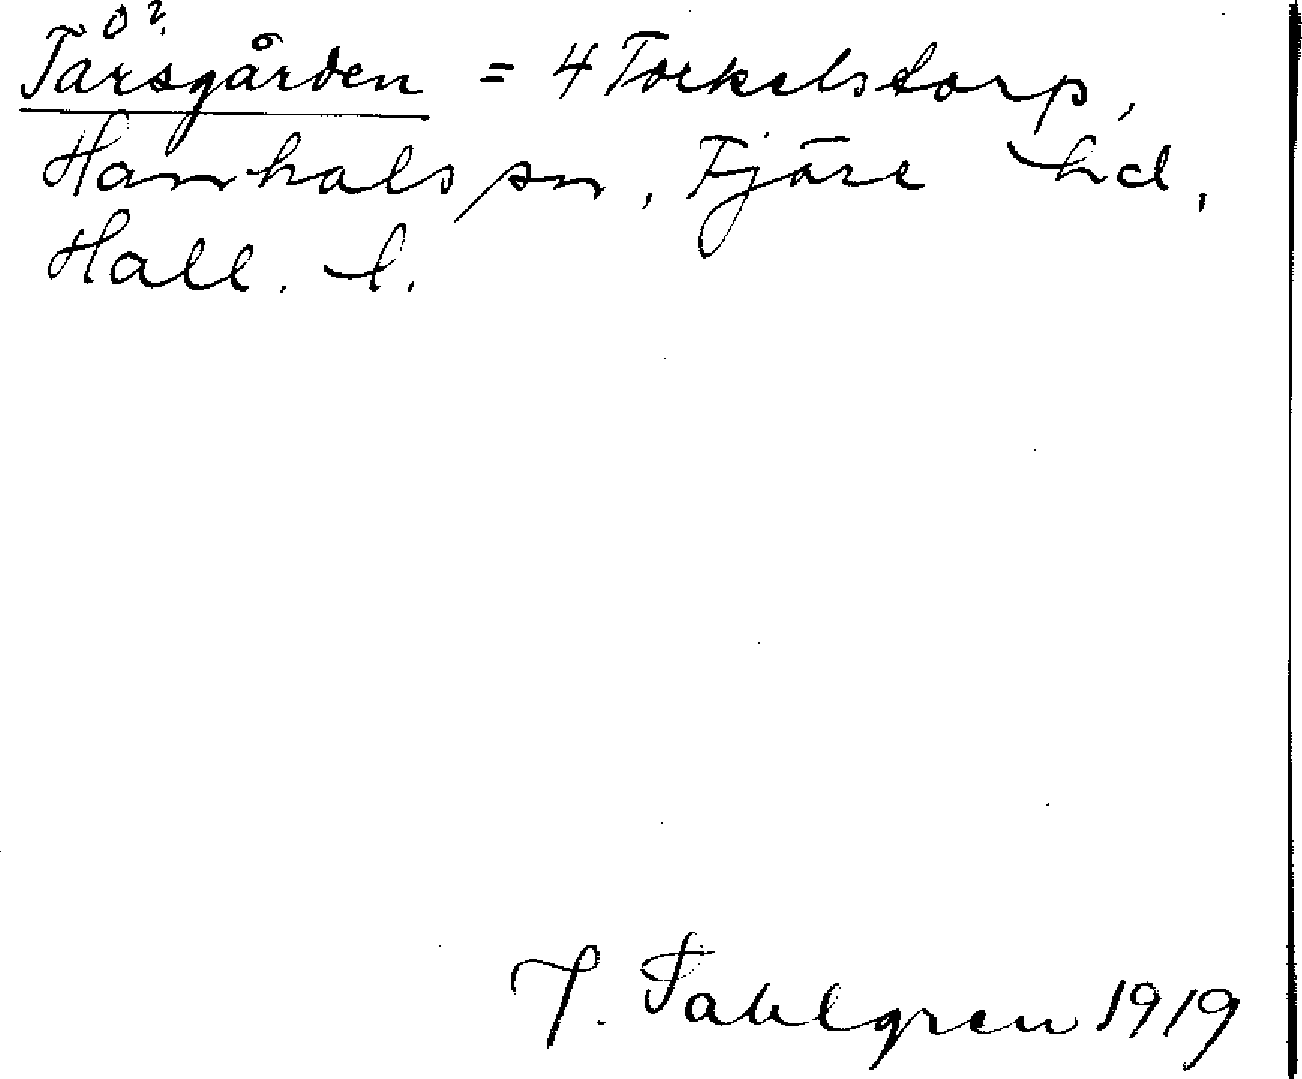 o?
Tarsgården = 4 Torkelstorp,
Hanhals sn, Fjäre hd,
Hall. l.
T. Sahlgren 1919